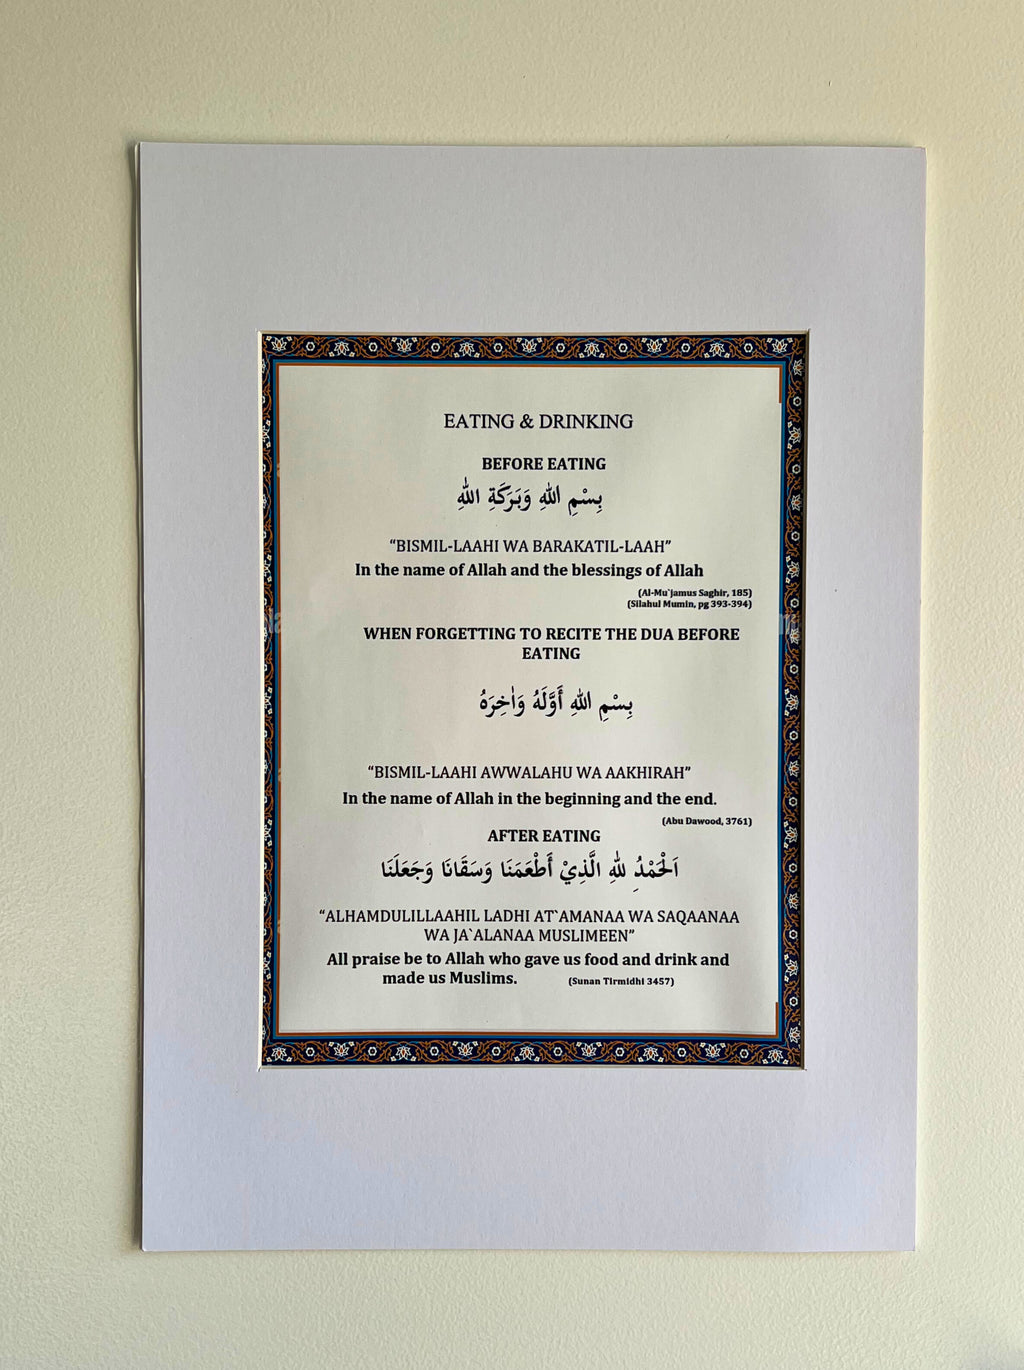 EATING & DRINKING
BEFORE EATING
بِسْمِ اللّٰهِ وَبَرَكَةِ اللّٰهِ
“BISMIL-LAAHI WA BARAKATIL-LAAH”
In the name of Allah and the blessings of Allah
(Al-Mu`jamus Saghir, 185)
(Silahul Mumin, pg 393-394)
WHEN FORGETTING TO RECITE THE DUA BEFORE
EATING
بِسْمِ اللّٰهِ أَوَّلَهُ وَاٰخِرَهُ
“BISMIL-LAAHI AWWALAHU WA AAKHIRAH”
In the name of Allah in the beginning and the end.
(Abu Dawood, 3761)
AFTER EATING
اَلْحَمْدُ لِلّٰهِ الَّذِيْ أَطْعَمَنَا وَسَقَانَا وَجَعَلَنَا
“ALHAMDULILLAAHIL LADHI AT`AMANAA WA SAQAANAA
WA JA`ALANAA MUSLIMEEN”
All praise be to Allah who gave us food and drink and
made us Muslims. (Sunan Tirmidhi 3457)